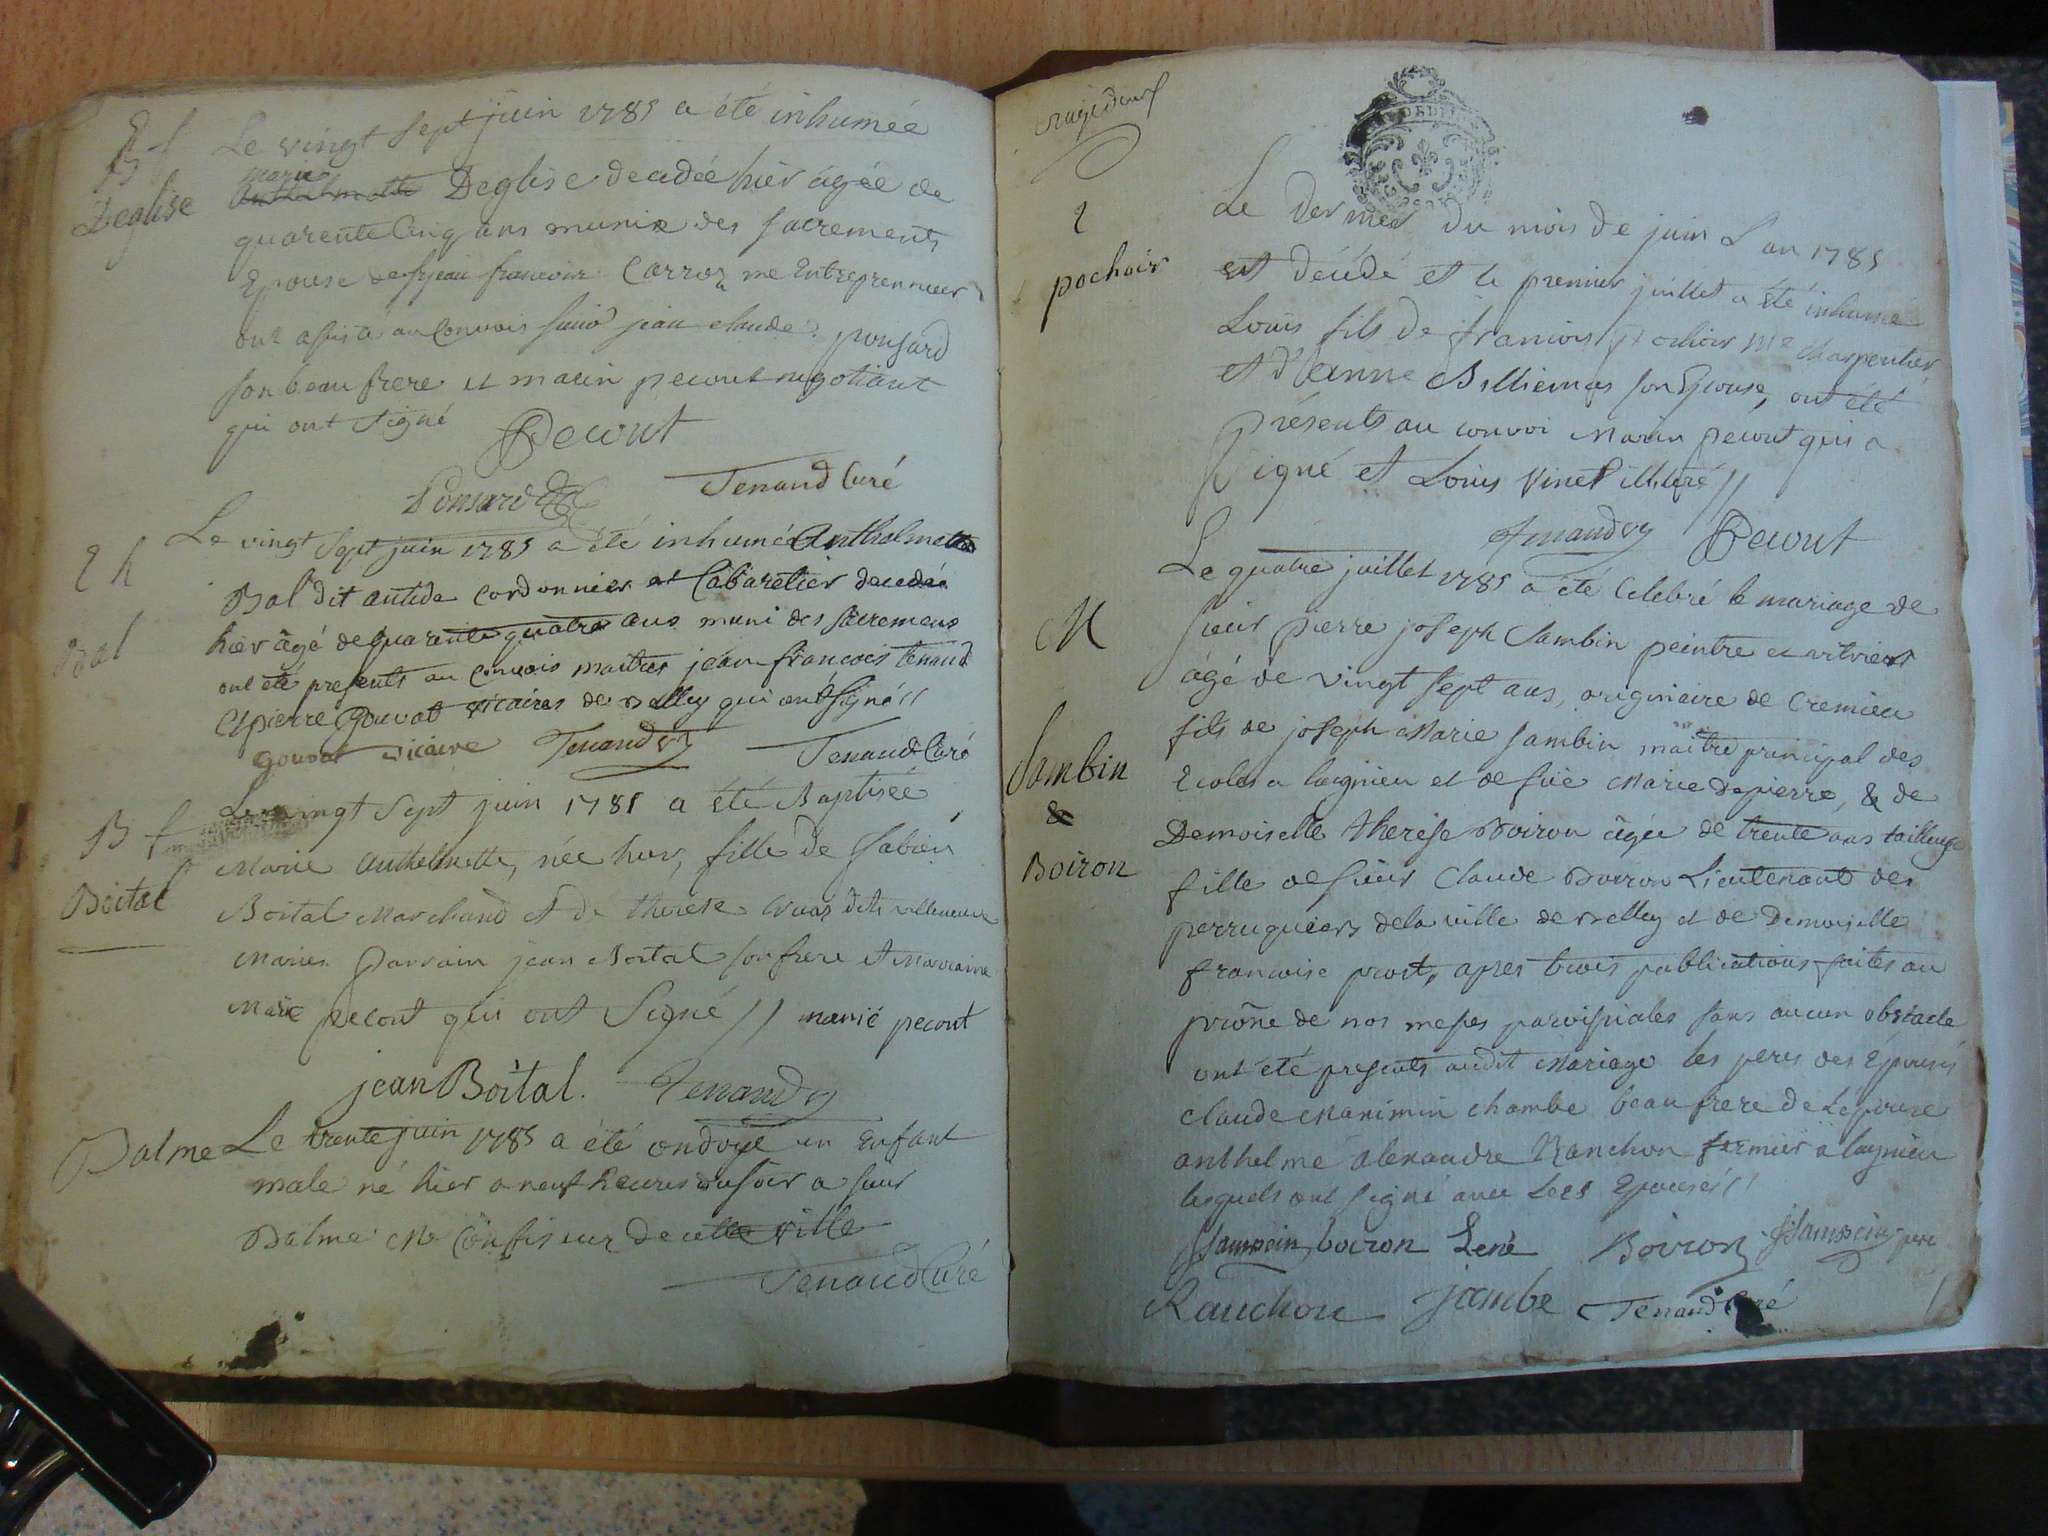 Le vingt sept juin 1785 a été inhumée
marie
Deglise
Deglise decedée hier âgée de
quarente Cinq ans munie des sacrements
Epouse de jean francois Carroz me Entreprenneur
ont assisté au Convois jean claude ponsard
son beau frere et marin pecout negotiant
qui ont signé
Pecout
Ponsard
Tenaud Curé
Le vingt sept juin 1785 a été inhumé Anthelme
Bal
Bal dit antide cordonnier et Cabaretier decedé
hier âgé de quarente quatre ans muni des sacremens
ont été presents au Convois maitres jean francois tenaud
et pierre Gouvat vicaires de Belley qui ont signé //
gouvat vicaire Tenaud v Tenaud Curé
B f
Le vingt sept juin 1785 a été Baptisée
Marie Anthelmette, née hier, fille de fabien
Boital
Boital Marchand et de therese dits villeneuve
Mariés Parrain jean Boital son frere et Marraine
Marie pecout qui ont Signé // marie pecout
jean Boital. Tenaud v
Balme
Le trente juin 1785 a été ondoyé un Enfant
male né hier a neuf heures du soir a sieur
Balme Me Confiseur de cette ville
Tenaud Curé
Le dernier du mois de juin L'an 1785
pochoir
est décédé et le premier juillet a été inhumé
Louis fils de francois pochoir Me charpentier
et d'anne Billiemas son Epouse, ont été
Présents au convoi Marin pecout qui a
signé et Louis Vinet illitéré //
Tenaud v Pecout
M
Le quatre juillet 1785 a été Celebré le mariage de
sieur pierre joseph Sambin peintre et vitrier
âgé de vingt sept ans, originaire de Cremieu
Sambin
&
Boiron
fils de joseph Marie Sambin maître principal des
Ecoles a lagnieu et de fuë Marie Depierre, & de
Demoiselle therese Boiron âgée de trente ans tailleuse
fille de sieur Claude Boiron Lieutenant des
perruquiers de la ville de Belley et de Demoiselle
francoise prost, apres trois publications faites au
prône de nos messes paroissiales sans aucun obstacle
ont été presents audit Mariage les peres des Epousés
Claude Maximin chambe beau frere de L'épouse
anthelme alexandre Ranchon fermier a lagnieu
lesquels ont signé avec Les Epousés //
boiron Boiron pere
Rauchon jambe Tenaud Curé